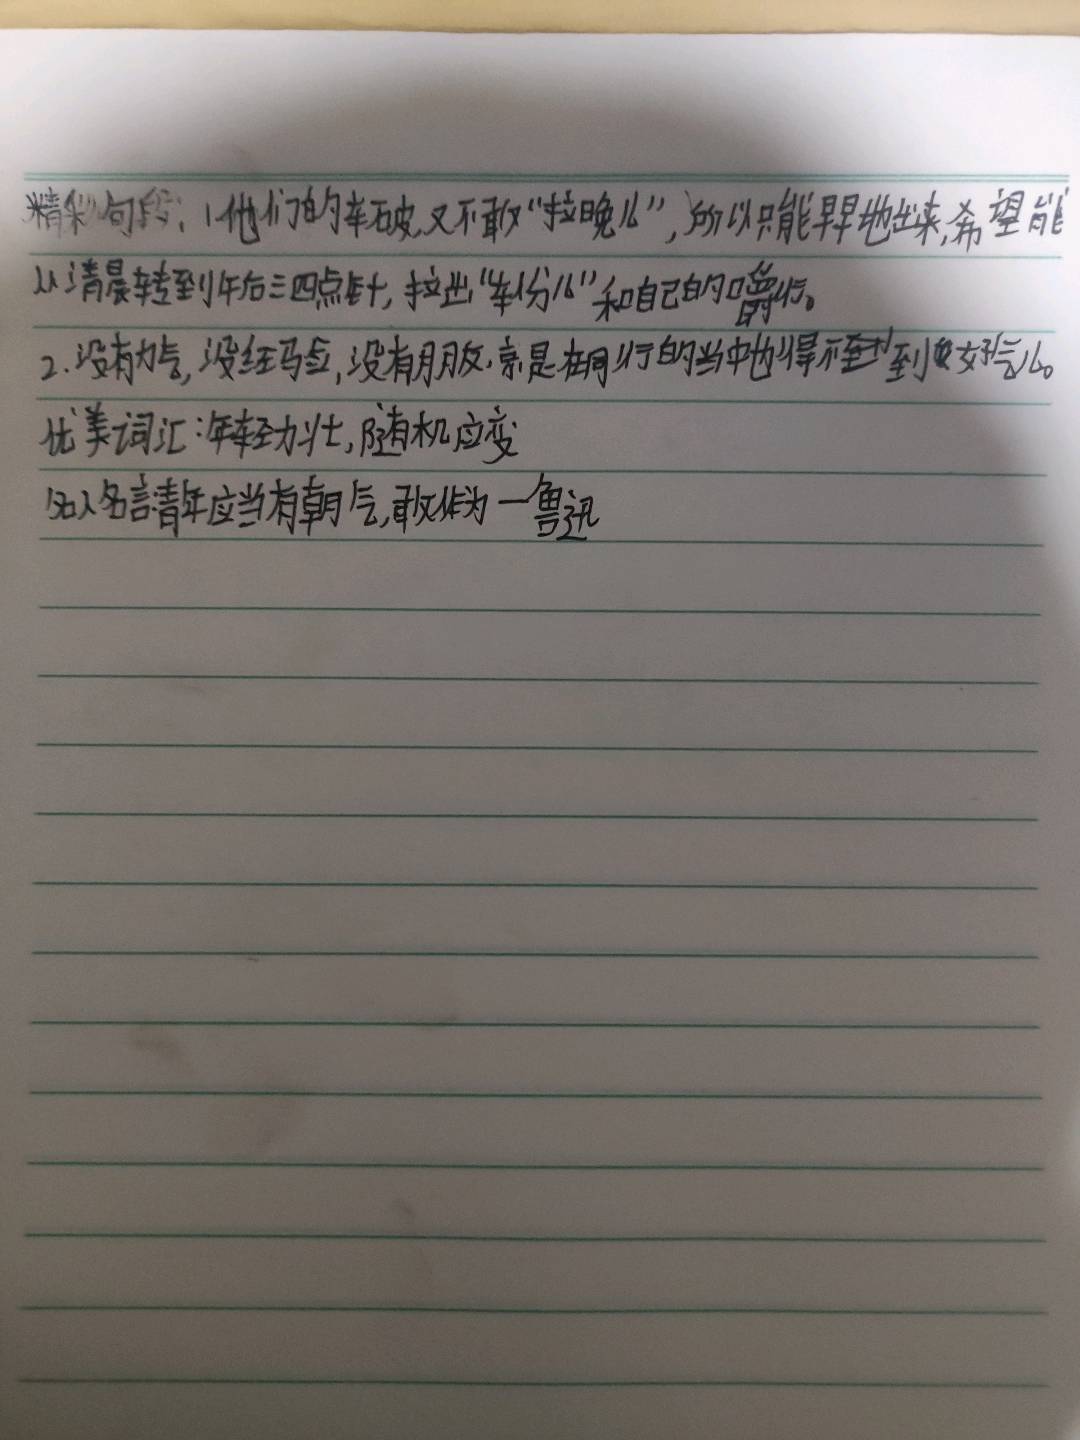 精彩句段:1他们的车破,又不敢“拉晚儿”,所以只能早早地出来,希望能
从清晨转到午后三四点钟,拉出“车份儿”和自己的嚼行。
2.没有力气,没经验,没有朋友,就是在同行的当中也得不到好气儿。
优美词汇:年轻力壮,随机应变
名人名言:青年应当有朝气,敢作为一鲁迅